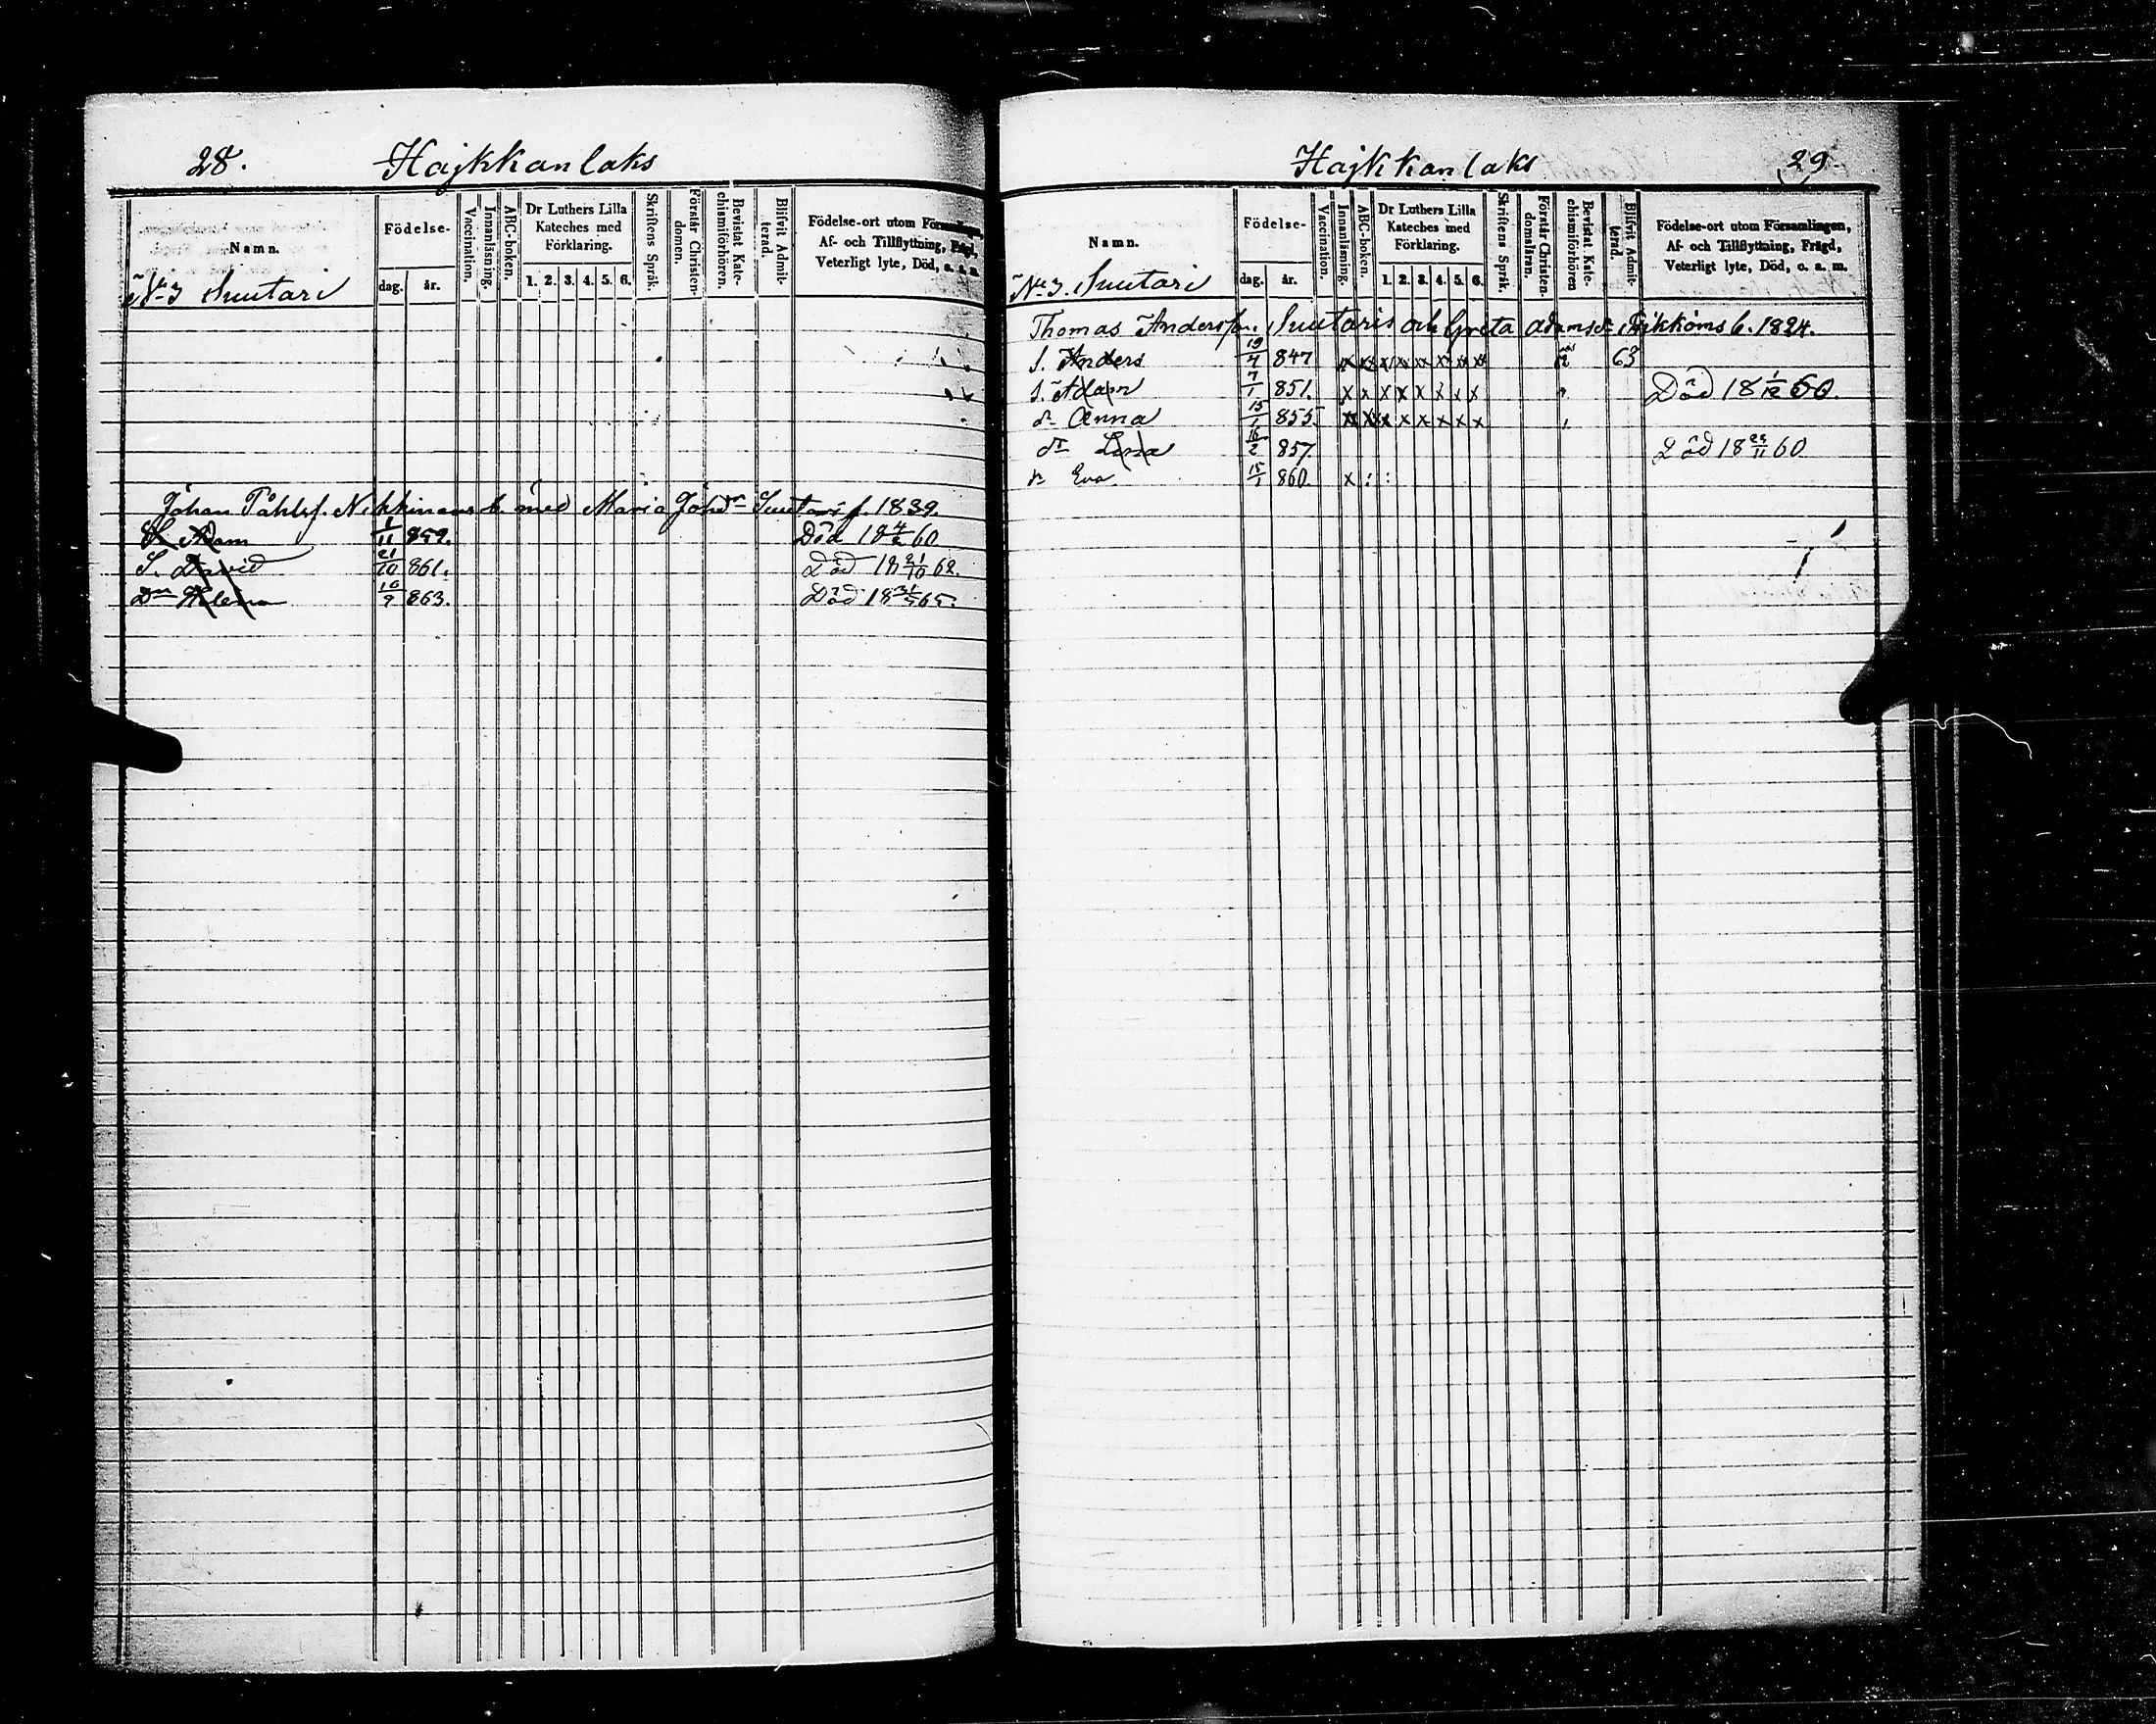 28. Hajkkanlaks
Namn.
Födelse-
dag. år.
Vaccination.
Innanläsning.
ABC-boken.
Dr Luthers Lilla Kateches med Förklaring.
1. 2. 3. 4. 5. 6.
Skriftens Språk.
Förstår Christendomen.
Bevistat Katechismiförhören.
Blifvit Admitterad.
Födelse-ort utom Församlingen,
Af- och Tillflyttning, Frägd,
Veterligt lyte, Död, o. a. m.
No 3 Suutari
Johan Påhlsf. Nikkinens b. med Maria Johdr Suutari f. 1839.
S. Adam 1/11 859. Död 18 4/2 60
S. David 21/10 861. Död 18 21/10 62.
Dr Helena 16/9 863. Död 18 31/5 65.
Hajkkanlaks 29
Namn.
Födelse-
dag. år.
Vaccination.
Innanläsning.
ABC-boken.
Dr Luthers Lilla Kateches med Förklaring.
1. 2. 3. 4. 5. 6.
Skriftens Språk.
Förstår Christendomsläran.
Bevistat Katechismiförhören
Blifvit Admitterad.
Födelse-ort utom Församlingen,
Af- och Tillflyttning, Frägd,
Veterligt lyte, Död, o. a. m.
No 3. Suutari
Thomas Andersson Suutaris och Greta Adamsdr b. 1824.
S. Anders 19/4 847 x x x x x x x x 63
S. Adam 7/1 851. x x x x x x x x Död 18 1/12 60.
dr Anna 15/1 855. x x x x x x x x
dr Lena 16/2 857. Död 18 29/11 60
dr Eva 15/1 860. x : :